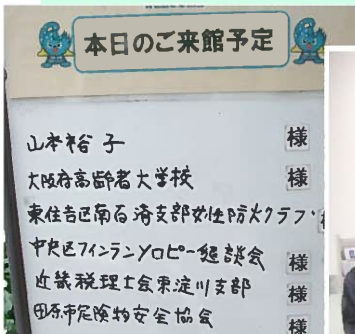 本日のご来館予定
山本裕子 様
大阪府高齢者大学校 様
東住吉区南百済支部女性防火クラブ
中央区フィランソロピー懇談会 様
近畿税理士会東淀川支部 様
田原市危険物安全協会 様